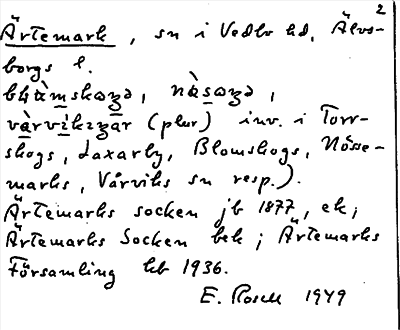 2
Ärtemark, sn i Vedbo hd, Älvs-
borgs l.
inv. i Torr-
skogs, Laxarby, Blomskogs, Nösse-
marks, Vårviks sn resp.).
Ärtemarks socken jb 1877, ek;
Ärtemarks Socken bek; Ärtemarks
Församling kb 1936.
E. Rosell 1949